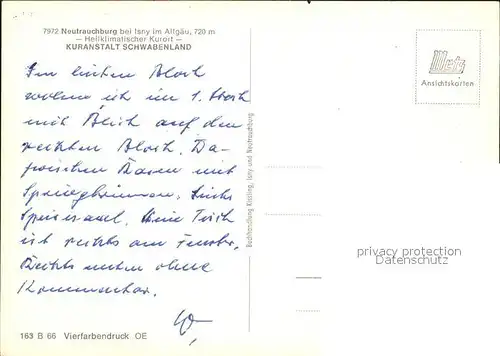 7972 Neutrauchburg bei Isny im Allgäu, 720 m
— Heilklimatischer Kurort —
KURANSTALT SCHWABENLAND
Im linken Block
wohne ich im 1. Stock
mit Blick auf den
rechten Block. Da-
zwischen Rasen mit
Springbrunnen. Links
Speisesaal. Mein Tisch
ist rechts am Fenster,
Rechts unten ohne
Kommentar.
163 B 66 Vierfarbendruck OE
Buchhandlung Kistling, Isny und Neutrauchburg
Metz
Ansichtskarten
privacy protection
Datenschutz